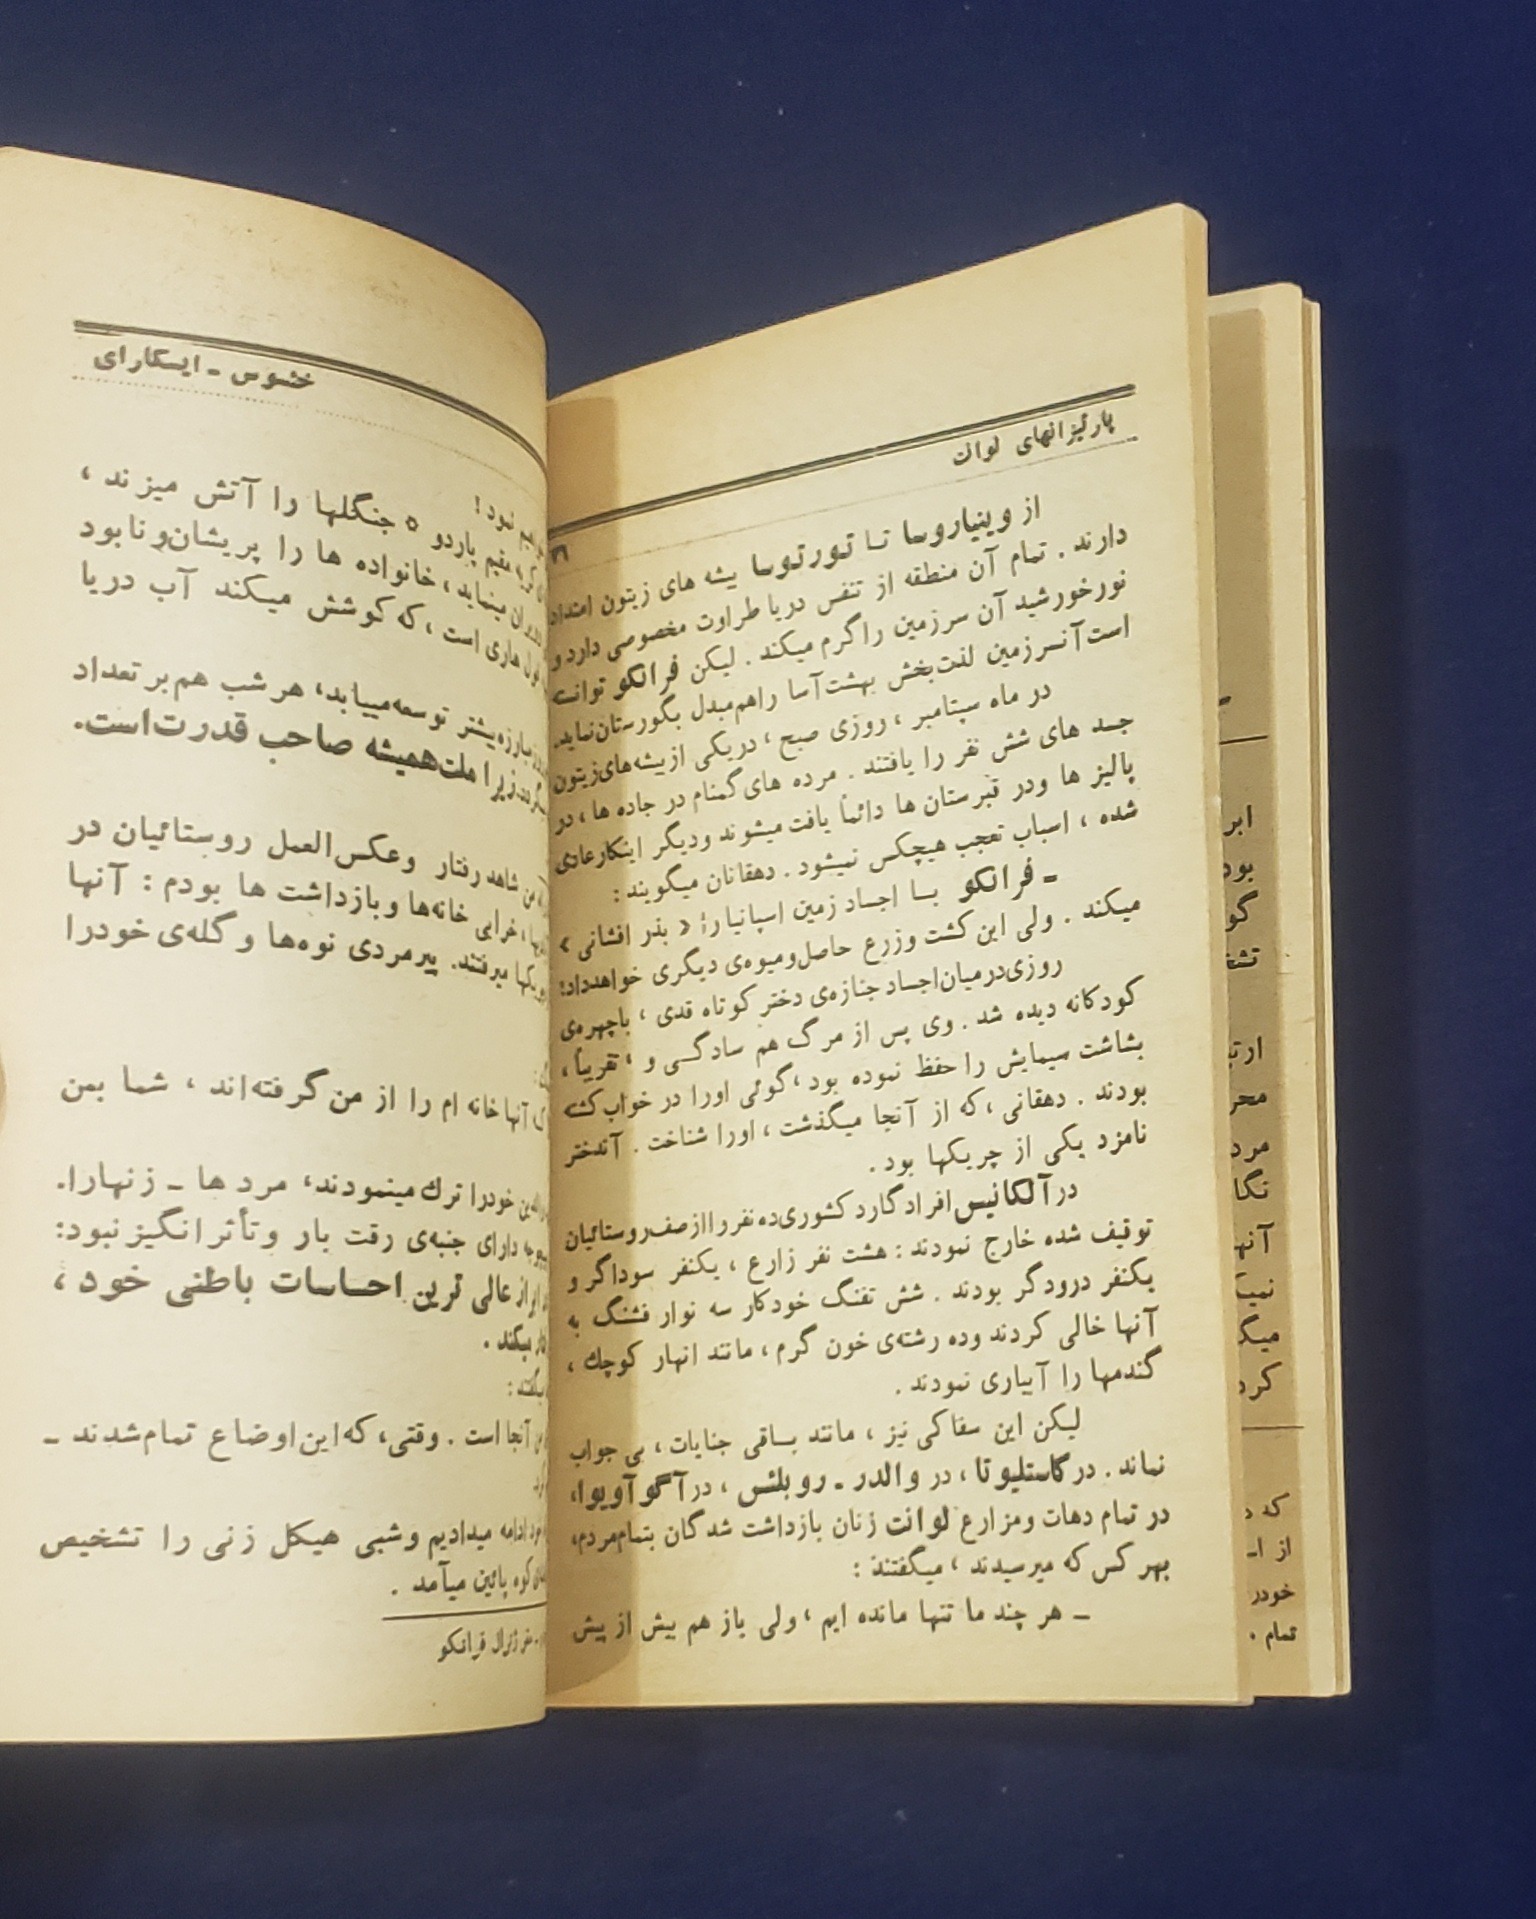 پارتیزانهای لوانت
۳۹
از وینیاروسا تا تورتوسا یشه های زیتون امتداد
دارند . تمام آن منطقه از تنفس دریا طراوت مخصوصی دارد و
نورخورشید آن سرزمین را گرم میکند . لیکن فرانکو توانسته
است آنسرزمین لذت‌بخش بهشت‌آسا راهم مبدل بگورستان نماید.
در ماه سپتامبر ، روزی صبح ، دریکی از یشه‌های زیتون
جسد های شش نفر را یافتند . مرده های گمنام در جاده ها ، در
پالیز ها ودر قبرستان ها دائماً یافت میشوند ودیگر اینکار عادی
شده ، اسباب تعجب هیچکس نمیشود . دهقانان میگویند :
ـ فرانکو بـا اجساد زمین اسپانیارا « بذر افشانی »
میکند . ولی این کشت وزرع حاصل ومیوه‌ی دیگری خواهدداد!
روزی درمیان اجساد جنازه‌ی دختر کوتاه قدی ، باچهره‌ی
کودکانه دیده شد . وی پس از مرگ هم سادگـی و ، تقریباً ،
بشاشت سیمایش را حفظ نموده بود ، گوئی اورا در خواب کشته
بودند . دهقانی ، که از آنجا میگذشت ، اورا شناخت . آندختر
نامزد یکی از چریکها بود .
در آلکانیس افراد گارد کشوری ده نفر را از صف روستائیان
توقیف شده خارج نمودند : هشت نفر زارع ، یکنفر سوداگر و
یکنفر درودگر بودند . شش تفنگ خودکار سه نوار فشنگ به
آنها خالی کردند وده رشته‌ی خون گرم ، مانند انهار کوچك ،
گندمها را آبیاری نمودند .
لیکن این سفاکی نیز ، مانند بـاقی جنایات ، بی جواب
نماند . در کاستلیوتا ، در والدر ـ روبلئس ، در آگو آویوا،
در تمام دهات ومزارع لوانت زنان بازداشت شدگان بتمام مردم،
بهر کس که میرسیدند ، میگفتند :
ـ هر چند ما تنها مانده ایم ، ولی باز هم بیش از پیش
خسوس ـ ایسکارای
نبود !
مقیم پاردو ٥ جنگلها را آتش میزند ،
مینماید ، خانواده ها را پریشان ونابود
هاری است ، که کوشش میکند آب دریا
بیشتر توسعه مییابد ، هر شب هم بر تعداد
زیرا ملت همیشه صاحب قدرت است.
من شاهد رفتار وعکس العمل روستائیان در
خرابی خانه‌ها وبازداشت ها بودم : آنها
میرفتند. پیرمردی نوه‌ها و گله‌ی خودرا
آنها خانه ام را از من گرفته‌اند ، شما بمن
خودرا ترك مینمودند ، مرد ها ـ زنهارا.
دارای جنبه‌ی رقت بار وتأثر انگیز نبود:
از عالی ترین احساسات باطنی خود ،
میکند .
آنجا است . وقتی، که این اوضاع تمام شدند ـ
ادامه میدادیم وشبی هیکل زنی را تشخیص
کوه پائین میآمد .
ژنرال فرانکو
ابر
بود
گو
مرد
نگا
آنها
میک
کرد
که
از
خودر
تمام .